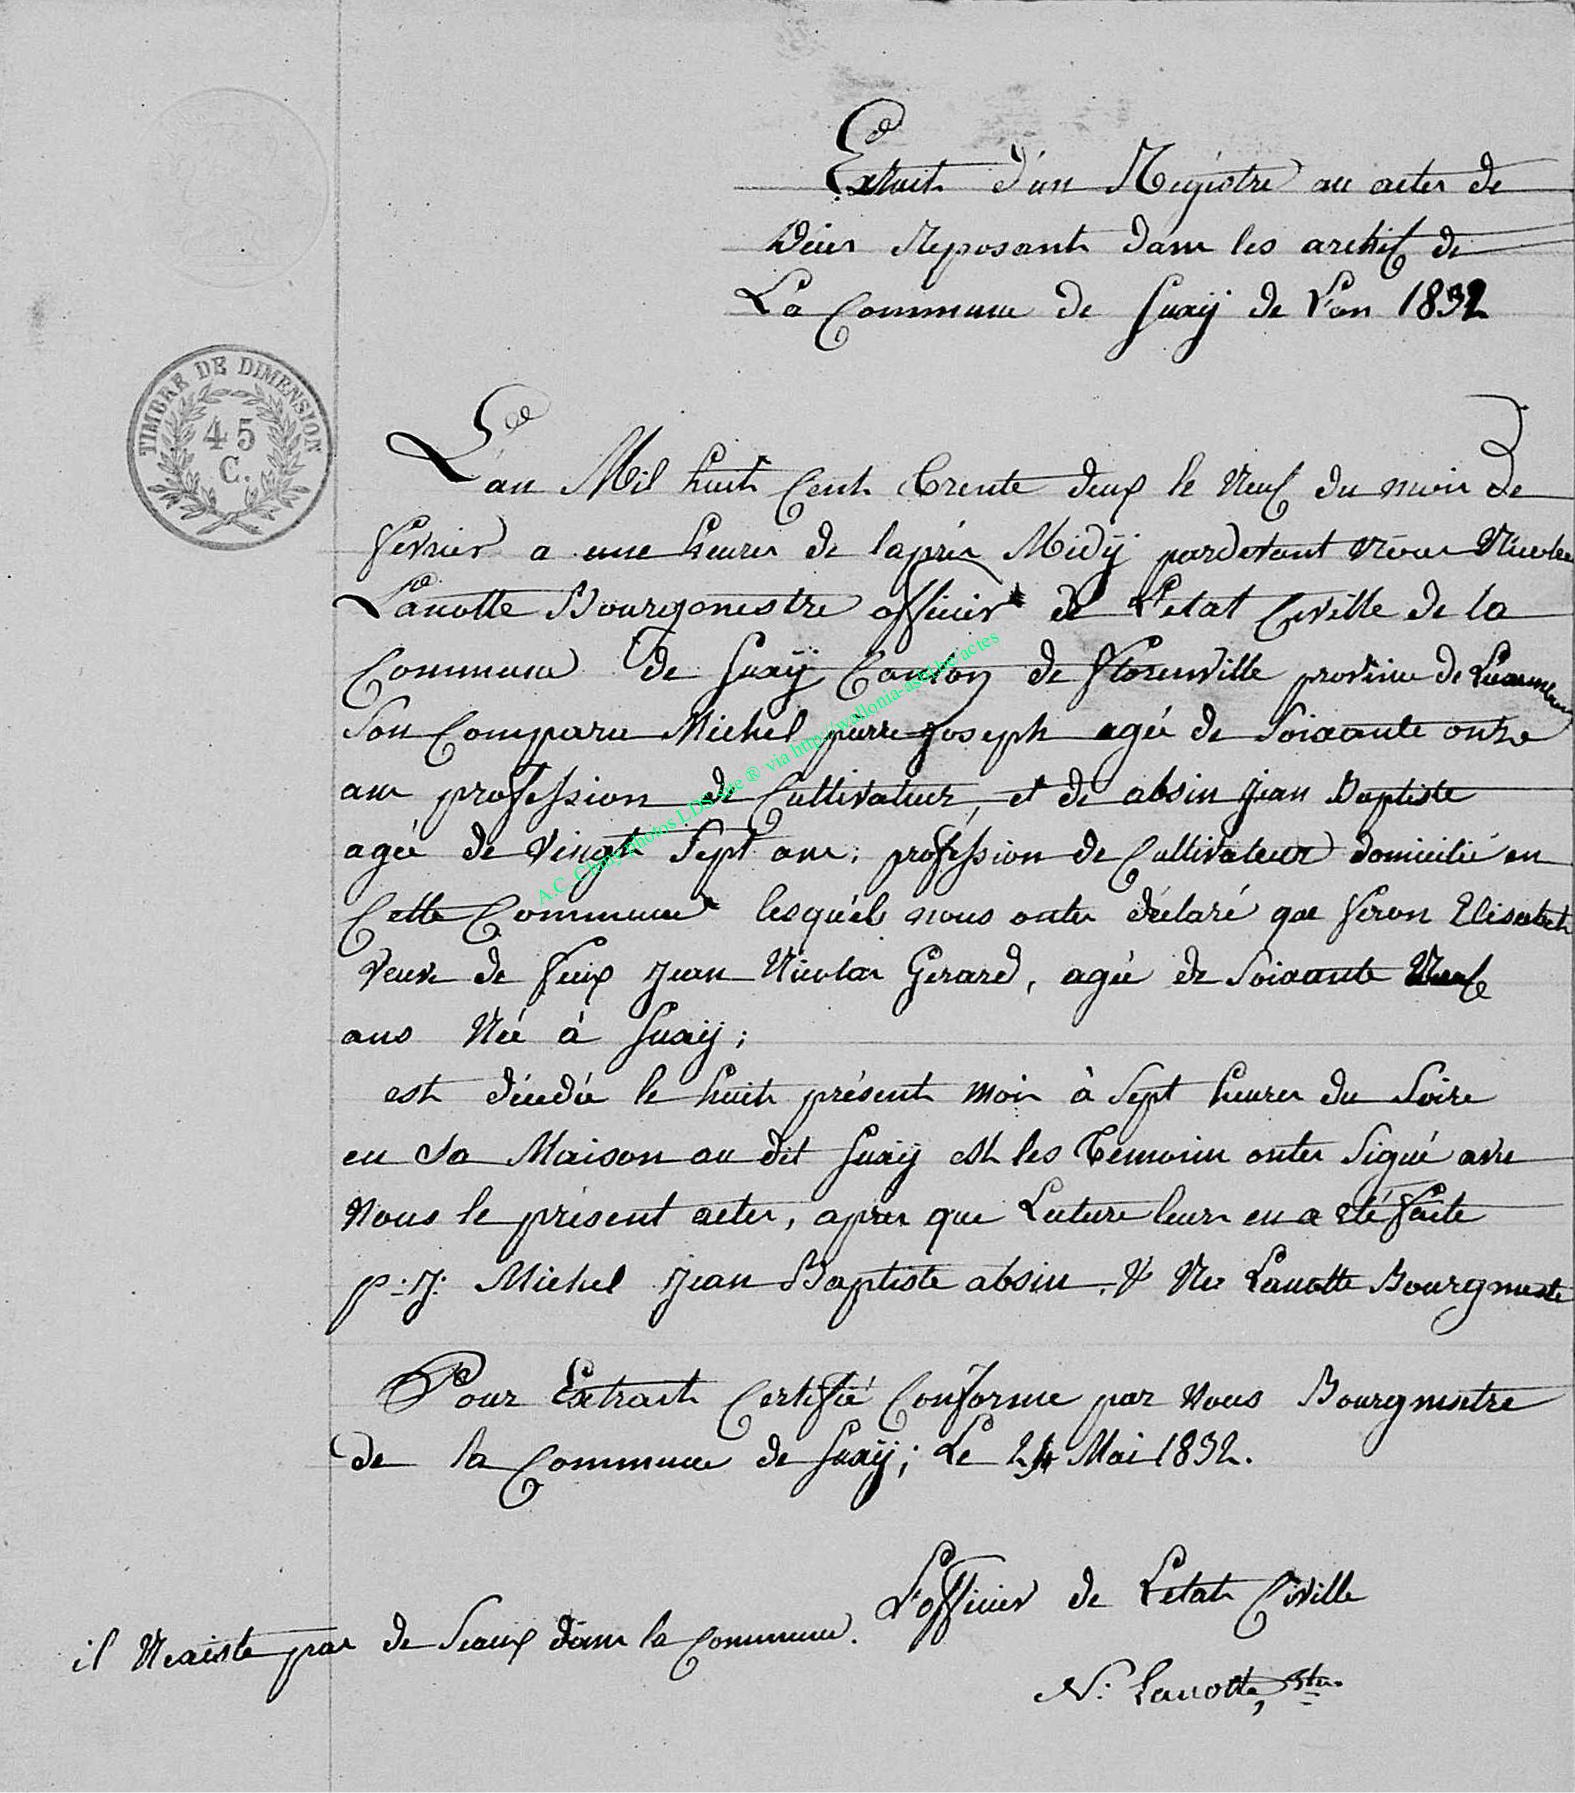 Extrait d'un Régistre au actes de
Décès Reposant dans les archif de
La Commune de Suxÿ de L'an 1832
TIMBRE DE DIMENSION
45
C.
L'an Mil huit Cent Trente deux le Neuf du mois de
fevrier a une heures de laprès Midÿ pardevant Nous Nicolas
Lanotte Bourgmestre officier de L'etat Civille de la
Commune de Suxÿ Canton de Florenville province de Luxembourg
Son Comparu Michel pierre joseph agée de Soixante onze
ans profession de Cultivateur, et de absin jean Baptiste
agée de vingt Sept ans, proféssion de Cultivateur domicilié en
Cette Commune lesquéls nous ontes déclaré que feron Elisabeth
veuve de feux jean Nicolas Gerard, agée de Soixante Neuf
ans Née à Suxÿ;
est décedée le huit présent mois à Sept heures du Soire
en Sa Maison au dit Suxÿ est les Temoins ontes Signé avec
Nous le présent actes, apres que Lecture leurs en a eté faite
p: j: Michel jean Baptiste absin, & Ns Lanotte Bourgmeste
Pour Extrait Certifié Conforme par Nous Bourgmestre
de la Commune de Suxÿ; Le 24 Mai 1832.
L'officier de L'etat Civille
il Nexiste pas de Seaux dans la Commune.
N: Lanotte,
A.C. Chiny photos LDS site ® via http://wallonia-asbl.be/actes